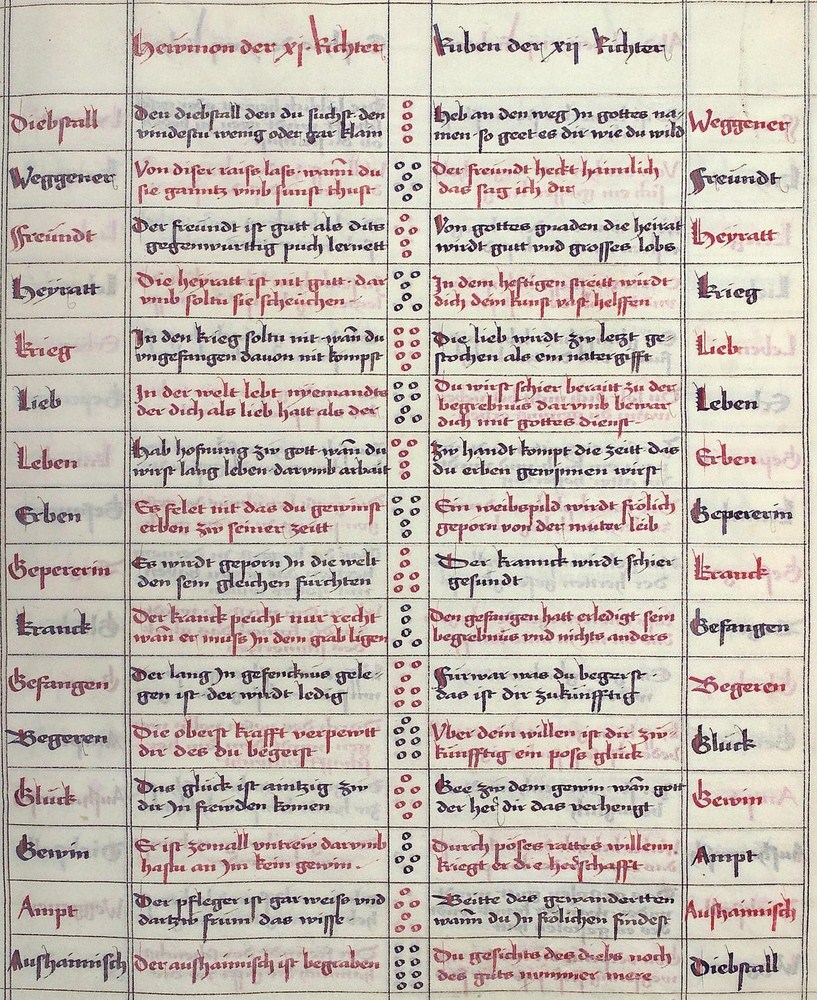 der xj. Richter
Ruben der xij Richter
Diebstall
Den diebstall den du suchst den
vindestu wenig oder gar klain
Heb an den weg Jn gottes na-
men so geet es dir wie du wild
Weggener
Weggener
Von diser raiss lass wann du
sie ganntz vmb sunst thust
Der freundt heckt haimlich
das sag ich dir
freundt
ffreundt
Der freundt ist gutt als dits
gegenwurttig puch lernett
Von gottes gnaden die heirat
wirdt gutt vnd grosses lobs
Heyratt
Heyratt
Die heyratt ist nit gutt dar
vmb soltu sie scheuchen
Jn dem hefftigen streitt wirdt
dich dein kunst vast helffen
Krieg
Krieg
Jn den krieg soltu nit wan du
vngefangen dauon nit kompst
Die lieb wirdt zw letzt ge-
stochen als ein natergifft
Lieb
Lieb
Jn der welt lebt nyemandts
der dich als lieb hatt als der
Du wirst schier beraitt zu der
begrebnus darvmb bewar
dich mit gottes dienst
Leben
Leben
Hab hofnung zw gott wan du
wirst lang leben darvmb arbait
Zw handt kompt die zeitt das
du erben gewinnen wirst
Erben
Erben
Es felet nit das du gewinst
erben zw seiner zeitt
Ein weibspild wirdt frölich
geporn von der muter leib
Gepererin
Gepererin
Es wirdt geporn Jn die welt
den sein gleichen furchten
Der kranck wirdt schier
gesundt
Kranck
Kranck
Der kranck peicht nur recht
wan er muss Jn dem grab ligen
Den gefangen hatt erledigt sein
begrebnus vnd nichts anders
Gefangen
Gefangen
Der lang Jn gefencknus gele-
gen ist der wirdt ledig
Furwar was du begerst
das ist dir zukunfftig
Begeren
Begeren
Die oberst krafft verpewtt
dir des du begerst
Vber dein willen ist dir zw-
kunfftig ein poss gluck
Glück
Glück
Das glück ist aintzig zw
dir Jn frewden komen
Gee zw dem gewin wan gott
der her dir das verhengt
Gewin
Gewin
Er ist zemall vntrew darvmb
hastu an Jm kein gewin
Durch poses rattes willenn
kriegt er die herschafft
Ampt
Ampt
Der pfleger ist gar weiss vnd
dartzw frum das wiss
Beitte des gewandertten
wann du Jn frölichen findest
Aushaimisch
Aushaimisch
Der aushaimisch ist begraben
Du gesichts des diebs noch
des guts nymmer mere
Diebstall